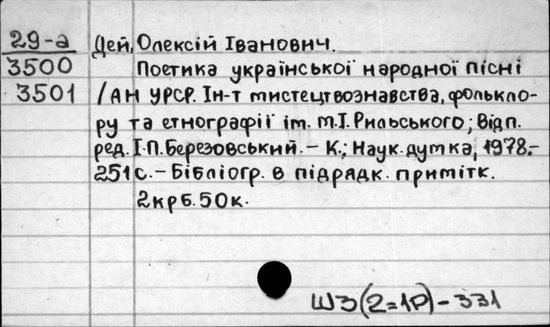 29-а
3500
3501
Дей, Олексій Іванович.
Поетика української народної пісні
/АН УРСР. Ін-т мистецтвознавства, фолькло-
ру та етнографії ім. М.Т. Рильського; Відп.
ред. І.П. Березовський. – К.; Наук. думка, 1978.–
251 с. – Бібліогр. в підрядк. примітк.
2 крб. 50 к.
ШЗ(2=1Р)-331